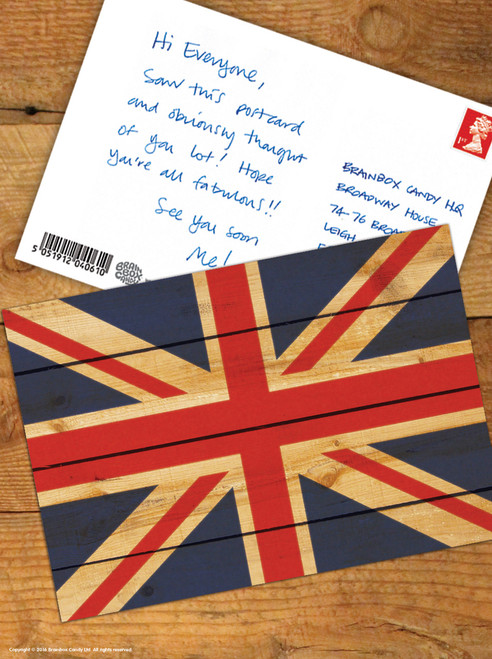 Hi Everyone,
Saw this postcard
and obviously thought
of you lot! Hope
you're all fabulous!!
See you soon
Me!
BRAINBOX CANDY HQ
BROADWAY HOUSE
74-76 BROA
LEIGH
1ST
5 051912 040610
BRAIN
BOX
CANDY
Copyright © 2016 Brainbox Candy Ltd. All rights reserved